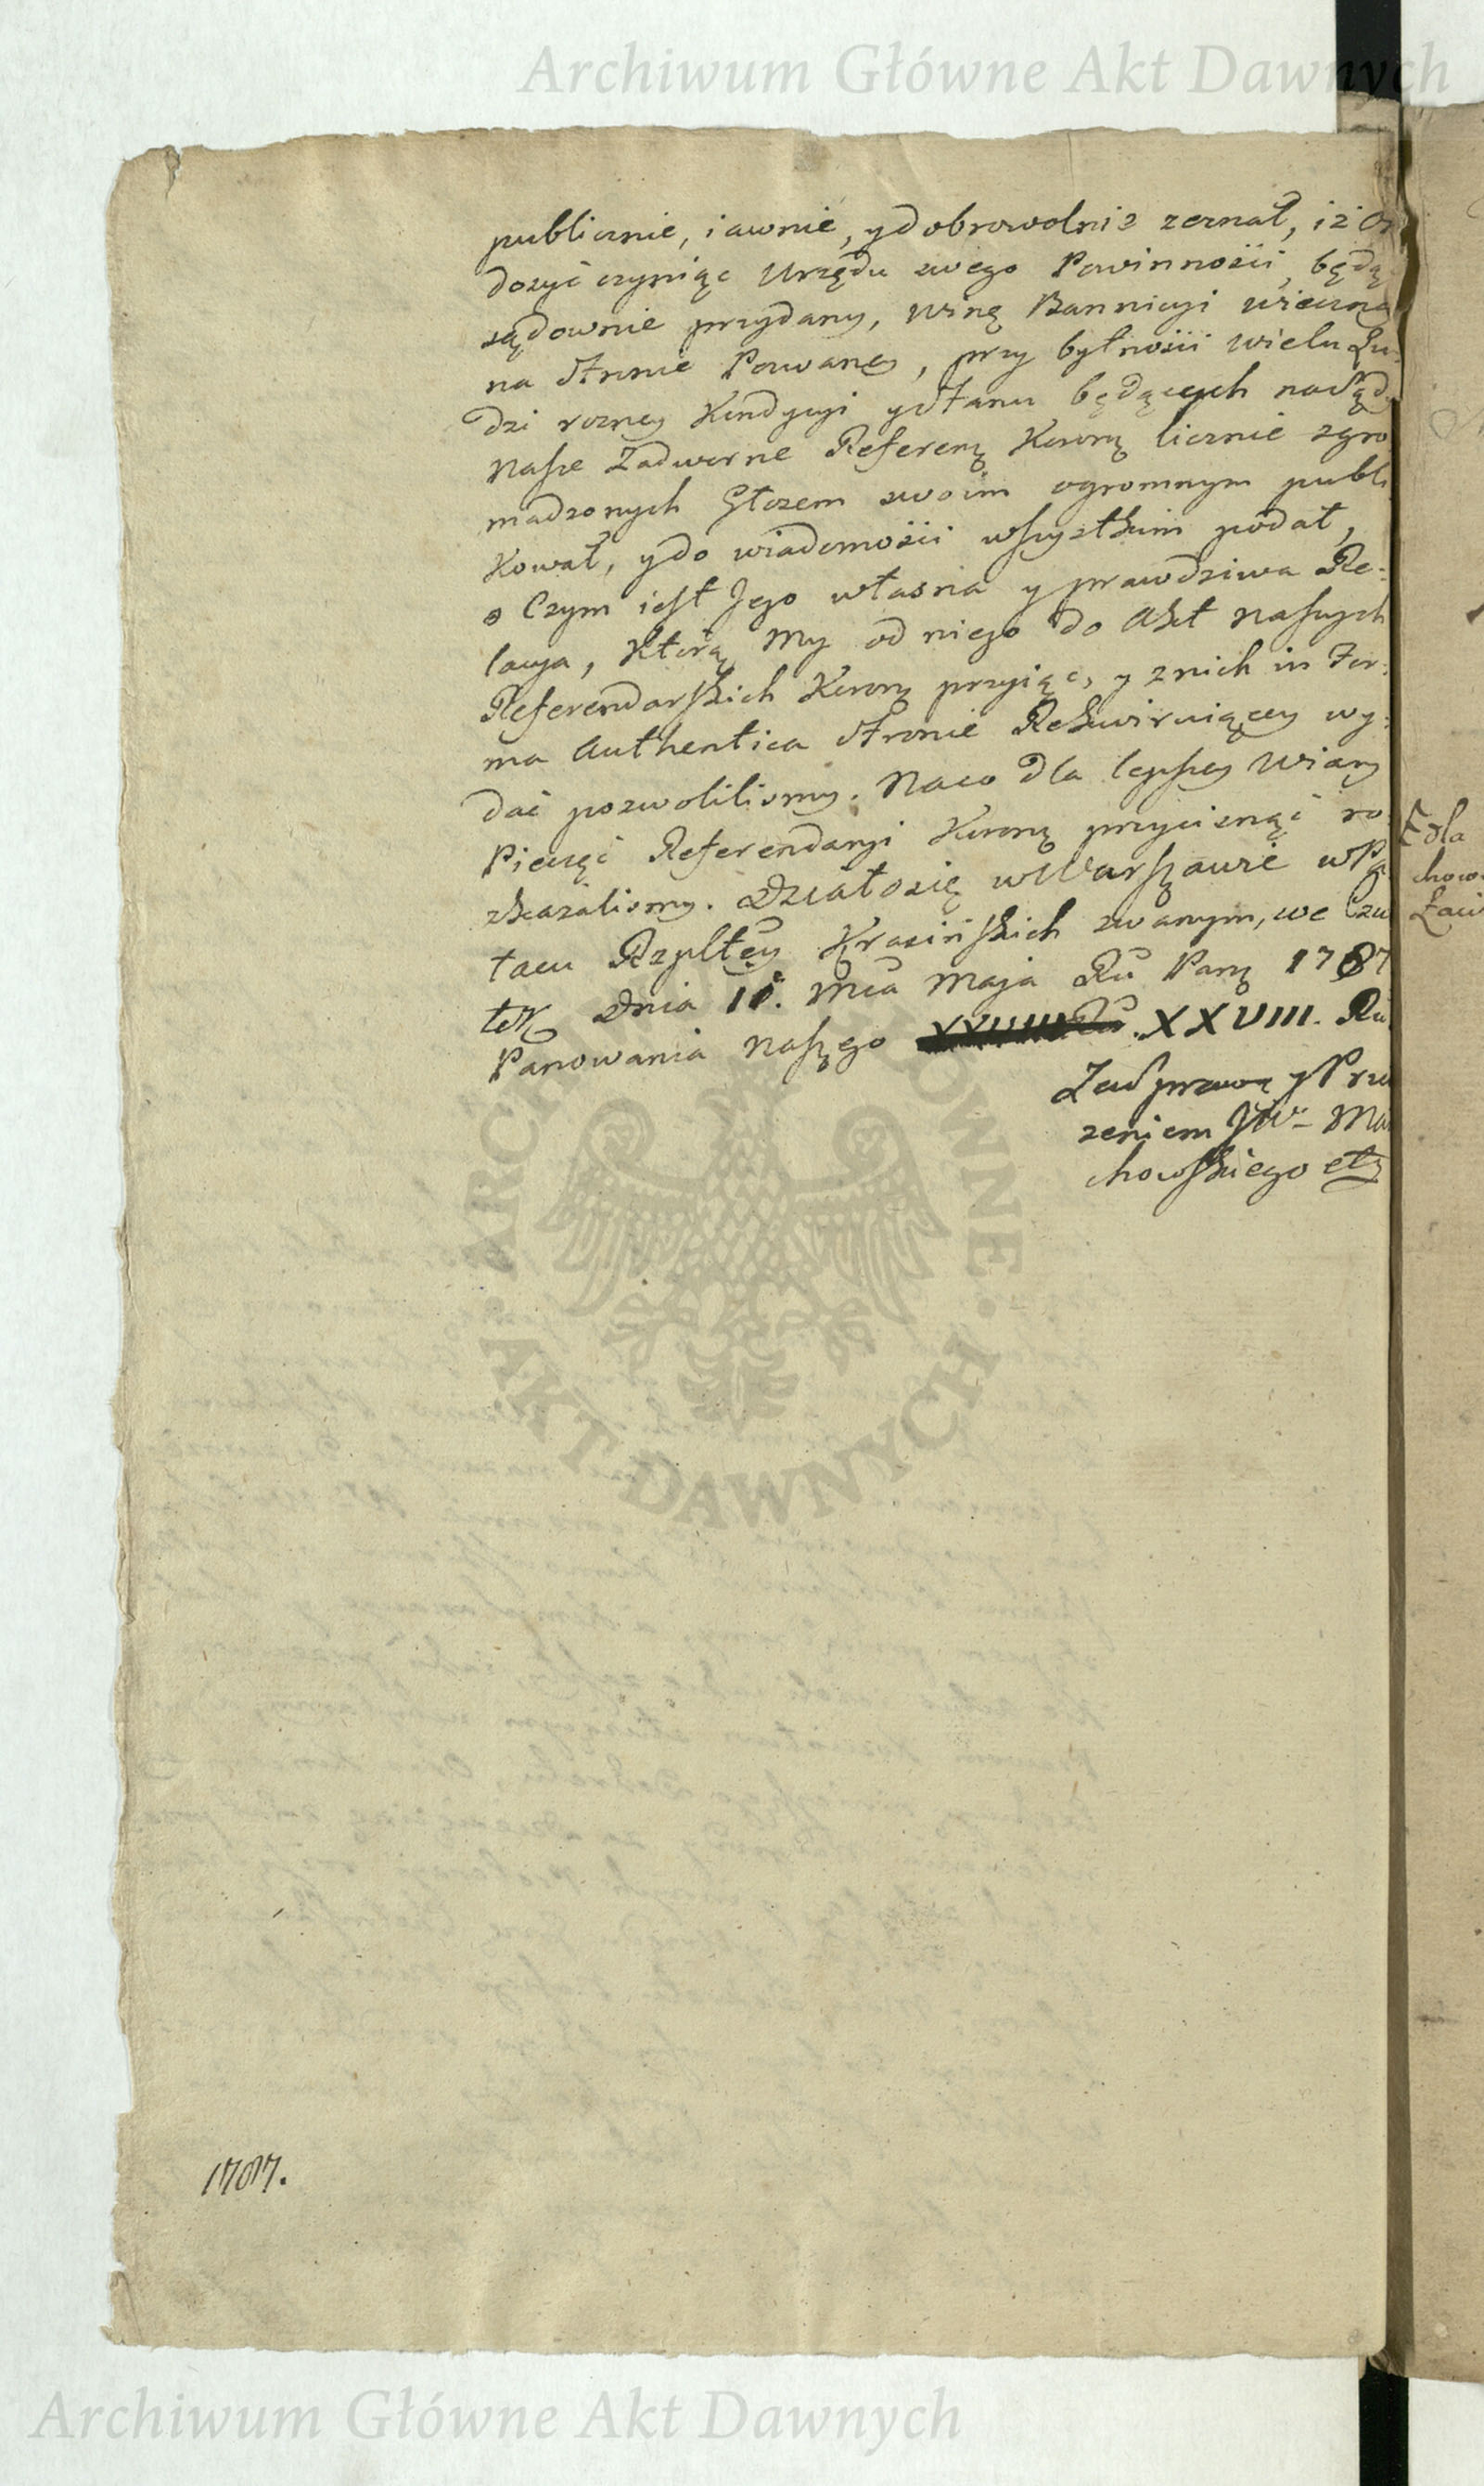 Archiwum Główne Akt Dawnych
publicznie, iawnie, y dobrowolnie zeznał, iż On
dosyć czyniąc Urzędu swego Powinnosii, będą
sądownie przydany, winę Bannicyi wieczną
na Stronie Pozwaney, przy bytnosii wielu Lu-
dzi rozney Kondycyi y Stanu będących na Sądy
Nasze Zadworne Referen: Koron: licznie zgro
madzonych Głosem swoim ogromnym publi
kował, y do wiadomosii wszystkim podał,
o Czym iest Jego własna y prawdziwa Re-
lacya, Którą My od niego do Akt Naszych
Referendarskich Koron: przyiąć, y z nich in For:
ma Authentica Stronie Rekwiruiącey wy:
dać pozwolilismy. Na co dla lepszey Wiary
Pieczęć Referendaryi Koron: przycisnąć ro
zkazalismy. Działo się w Warszawie w Pa
łacu Rzpltey Krasińskich zwanym, we Czw
tek Dnia 11. Mca Maja Ru Pań: 1787
Panowania Naszego XXVIII. Ru
Za Sprawą y Prze
zeniem JW. Ma
chowskiego etc
Zdla
chow
Law
ARCHIWUM GŁÓWNE · AKT DAWNYCH ·
1787.
Archiwum Główne Akt Dawnych